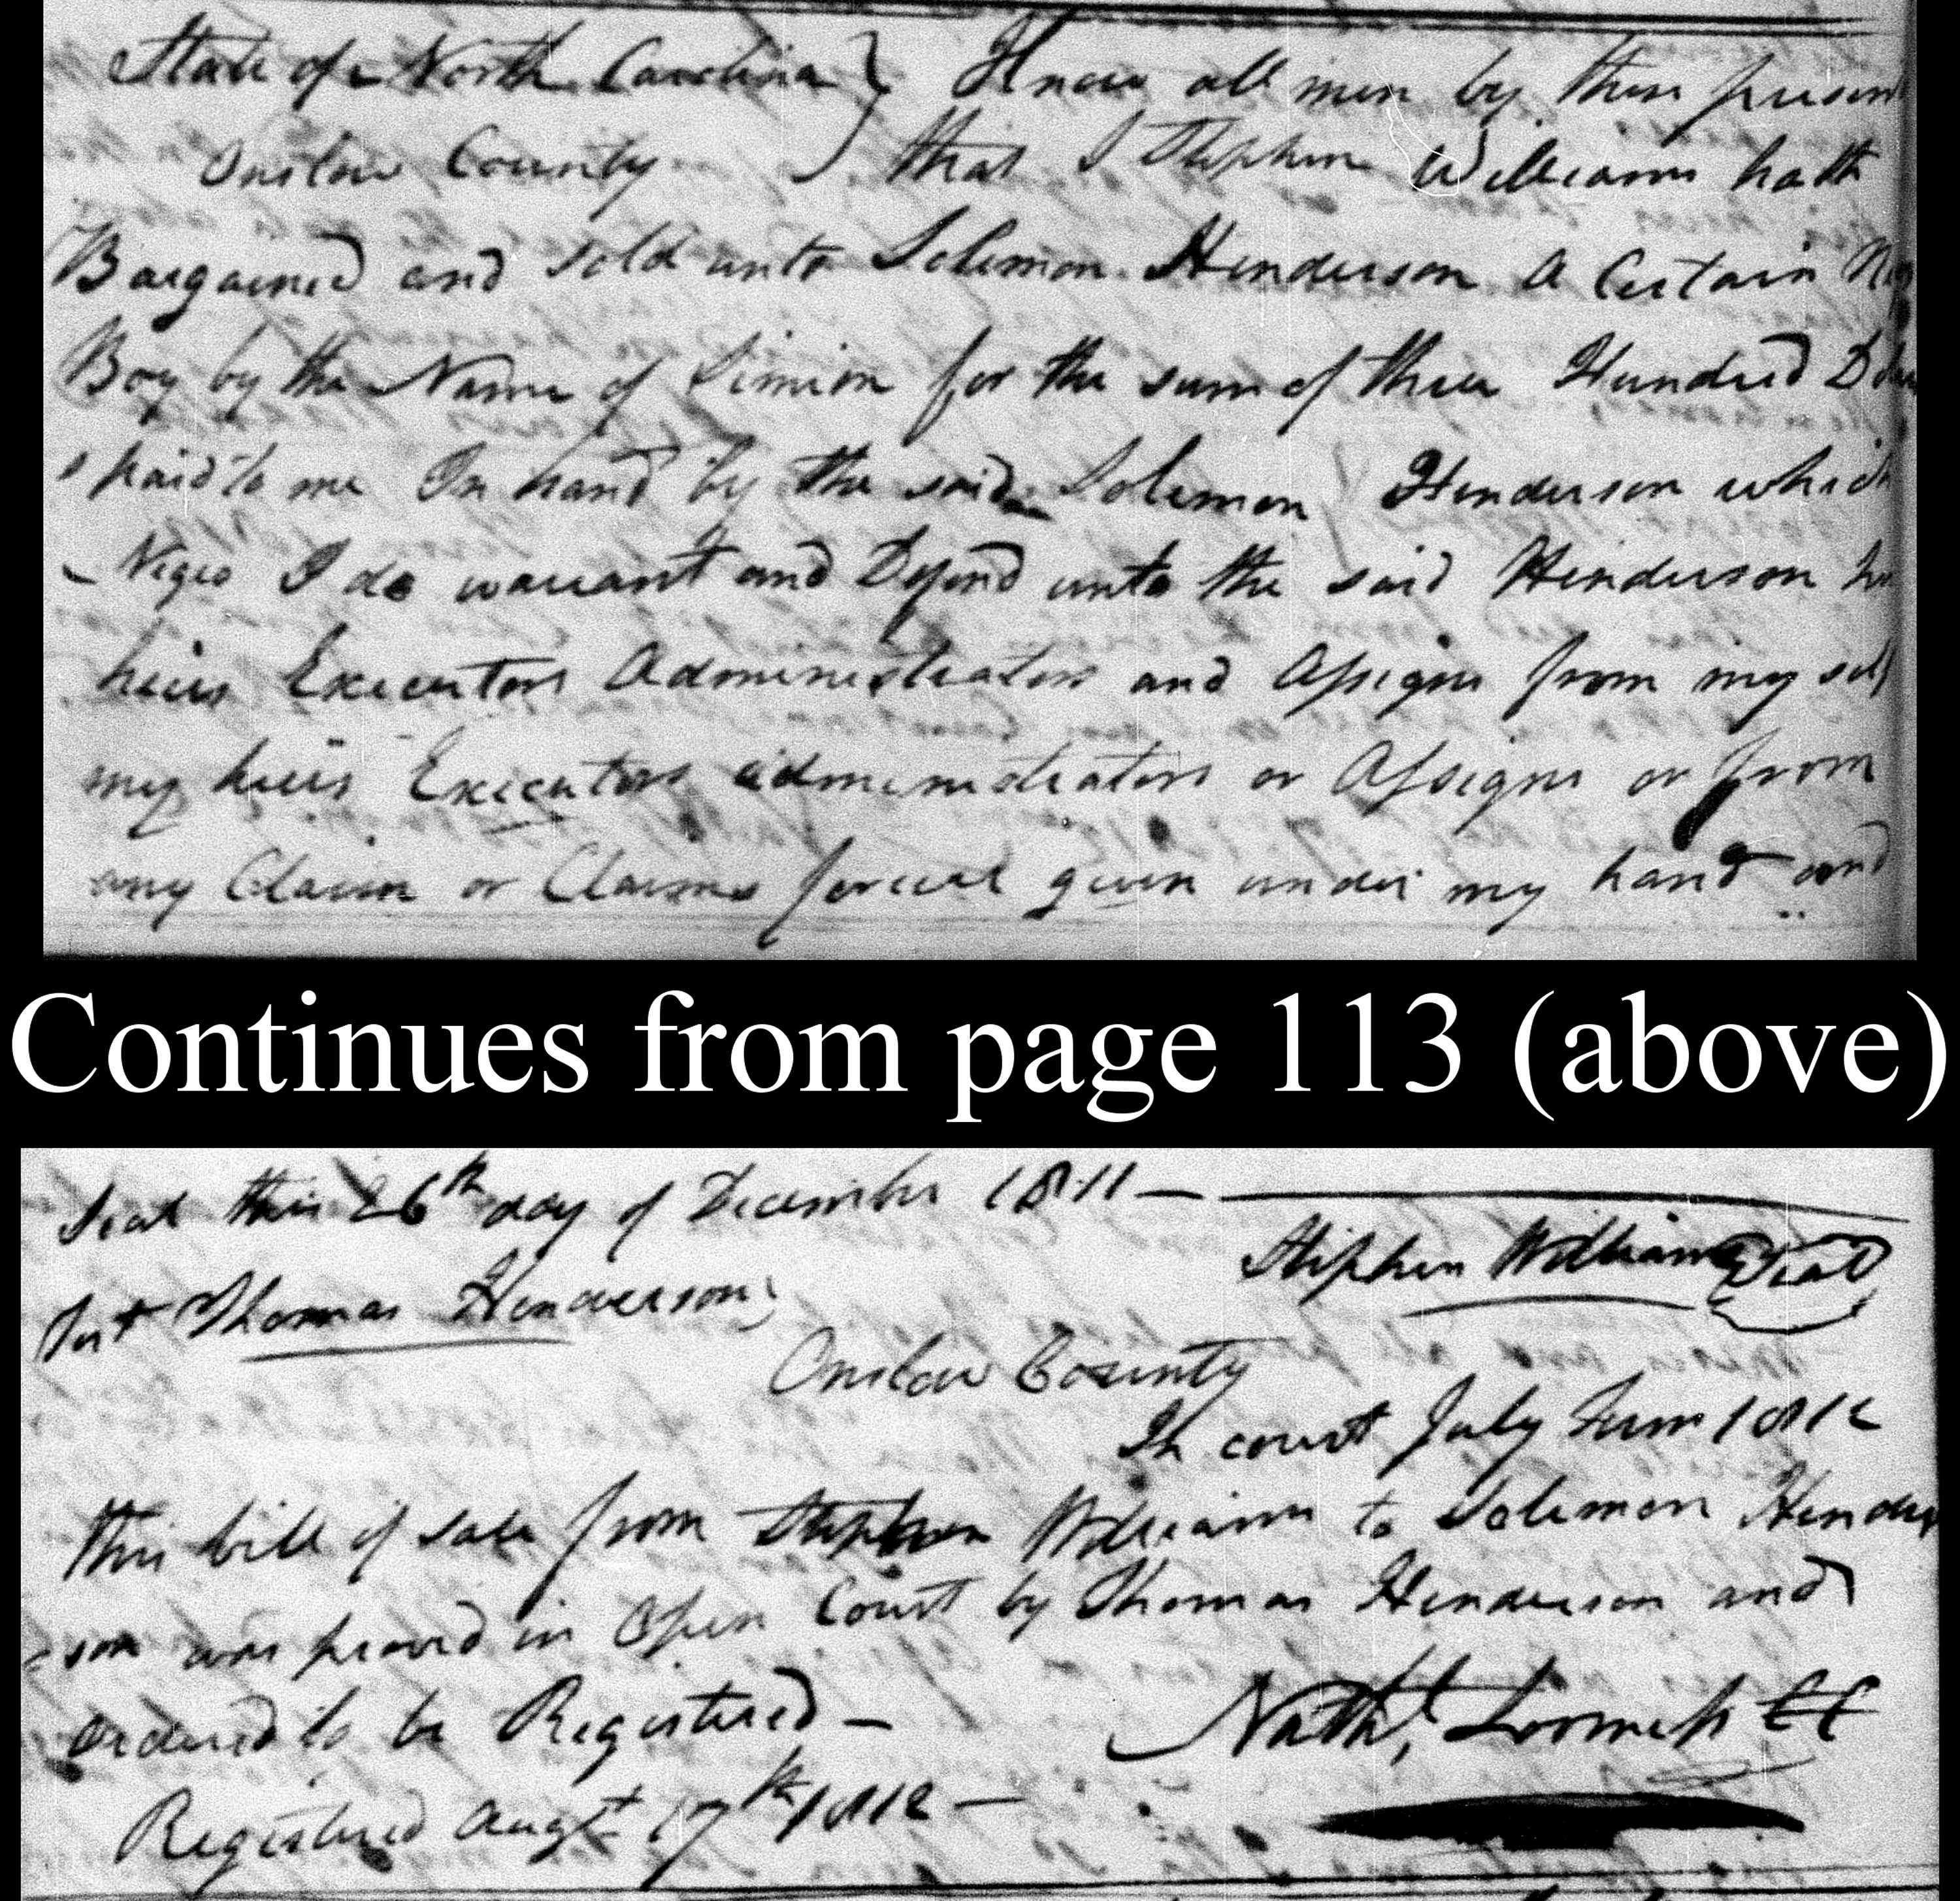 State of North Carolina } Know all men by these present
Onslow County } that I Stephen Williams hath
Bargained and sold unto Solemon Henderson A Certain
Boy by the Name of Simion for the sum of three Hundred
paid to me In hand by the said Solemon Henderson which
Negro I do warrant and Defend unto the said Henderson
heirs Executors Administrators and Assigns from my self
my heirs Executors administrators or Assigns or from
any Claim or Claims forever given under my hand and
Continues from page 113 (above)
Seal this 26th day of December 1811 —
Stephen Williams Seal
Test Thomas Henderson
Onslow County
In court July Term 1812
this bill of sale from Stephen Williams to Solemon Hender
son was proved in Open Court by Thomas Henderson and
ordered to be Registered —
Nathl Loomis CC
Registered Augt 17th 1812 —